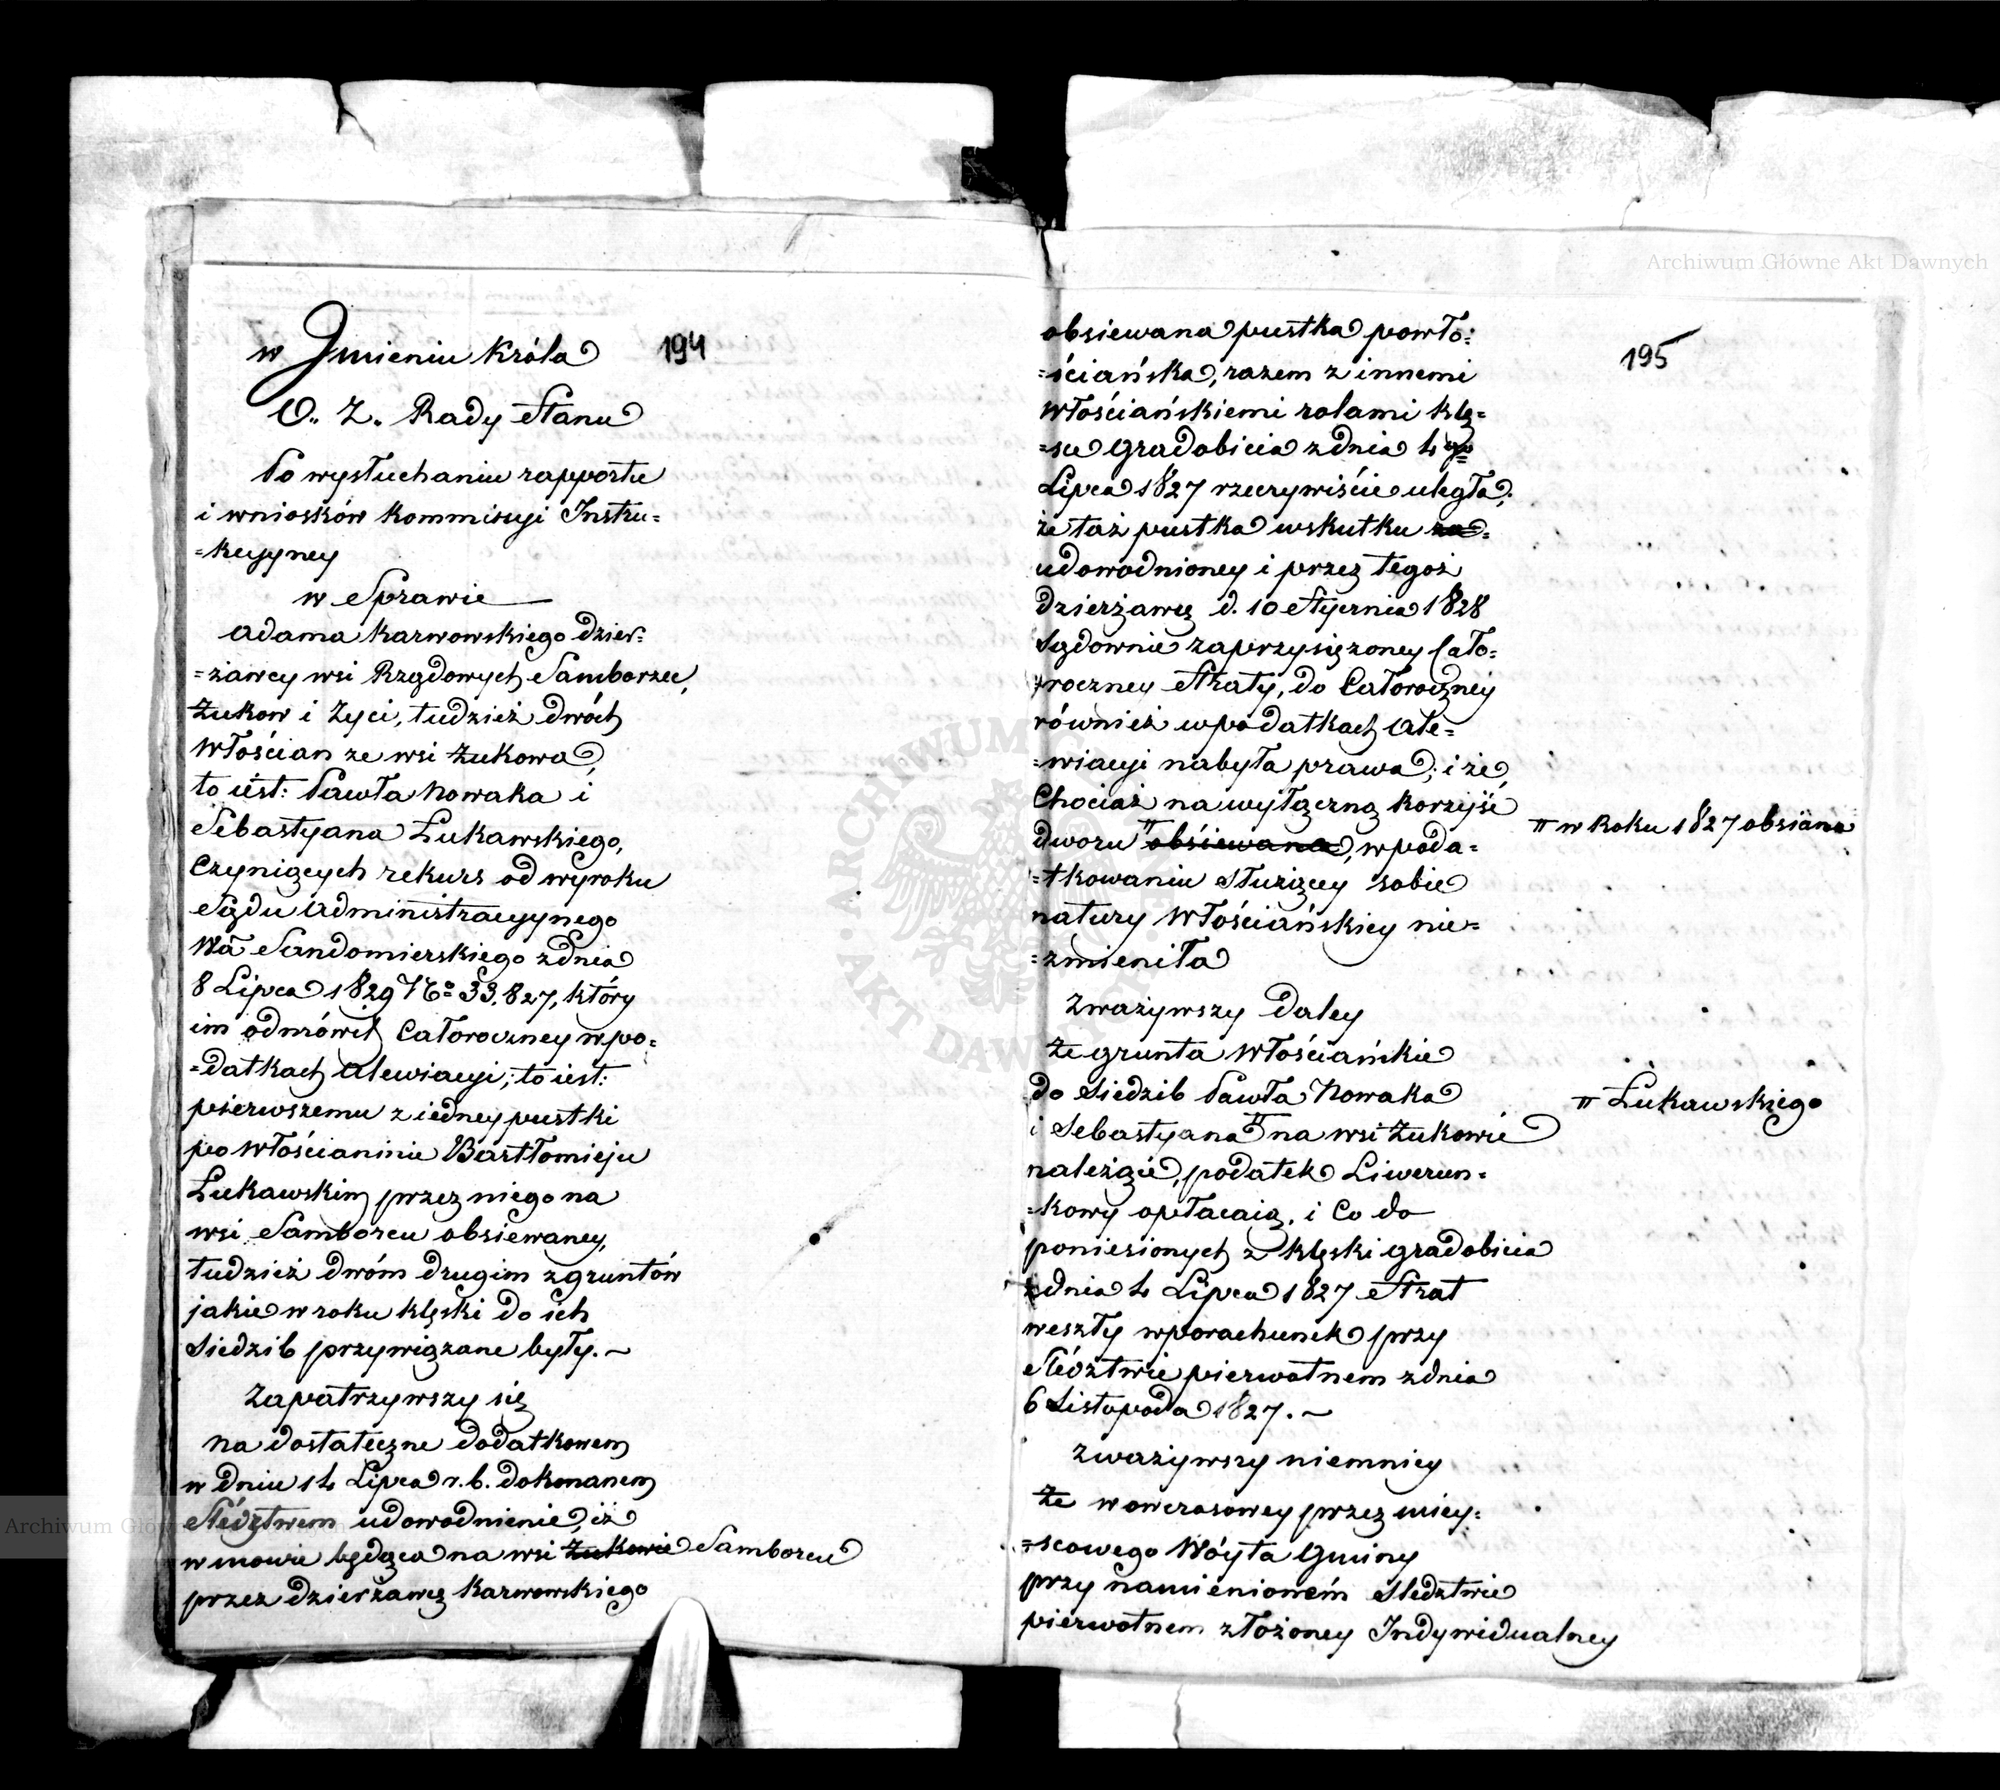 194
w Jmieniu Króla
O. Z. Rady Stanu
Po wysłuchaniu rapportu
i wniosków Kommissyi Instru=
=kcyyney
w Sprawie
Adama Karwowskiego dzier=
=żawcy wsi Rządowych Samborzec,
Żukow i Życi, tudzież dwóch
Włościan ze wsi Żukowa,
to iest: Pawła Nowaka i
Sebastyana Łukawskiego,
Czyniących rekurs od wyroku
Sądu Administracyynego
Wa Sandomierskiego z dnia
8 Lipca 1829 No 33.827, który
im odmówił Całoroczney w po=
=datkach Alewiacyi; to iest:
pierwszemu z iedney pustki
po Włościaninie Bartłomieju
Łukawskim przez niego na
wsi Samborcu obsiewaney,
tudzież dwóm drugim z gruntów
jakie w roku klęski do ich
Siedzib przywiązane były. ~
Zapatrzywszy się
na dostateczne dodatkowem
w dniu 14 Lipca r. b. dokonanem
Śledztwem udowodnienie, iż
w mowie będąca na wsi Żukowie Samborcu
przez dzierżawcę Karwowskiego
195
obsiewana pustka powło=
=ściańska, razem z innemi
Włościańskiemi rolami klę=
=sce Gradobicia z dnia 4 go
Lipca 1827 rzeczywiście uległa;
że taż pustka wskutku za=
udowodnioney i przez tegoż
dzierżawcę d. 10 Stycznia 1828
Sądownie zaprzysiężoney Cało=
=roczney Straty, do Całoroczney
również w podatkach Ale=
=wiacyi nabyła prawa; i że,
Chociaż na wyłączną korzyść
dworu π obsiewana, w poda=
π w Roku 1827 obsiana
=tkowaniu Służącey sobie
natury Włościańskiey nie=
=zmieniła
Zważywszy daley
Że grunta Włościańskie
do Siedzib Pawła Nowaka
i Sebastyana π na wsi Żukowie
π Łukawskiego
należące, podatek Liwerun=
=kowy opłacaią, i Co do
poniesionych z klęski gradobicia
z dnia 4 Lipca 1827 Strat
weszły w porachunek przy
Śledztwie pierwotnem z dnia
6 Listopada 1827. ~
Zważywszy niemniey
Że w owczasowey przez miey=
=scowego Wóyta Gminy
przy namienionem Śledztwie
pierwotnem złożoney Indywidualney
Archiwum Główne Akt Dawnych